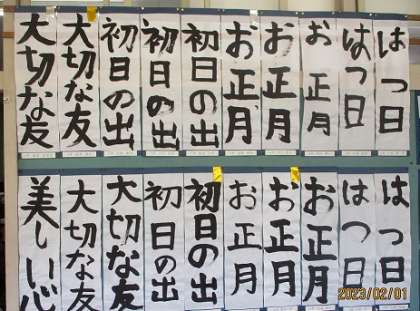 はつ日
はつ日
お正月
お正月
お正月
初日の出
初日の出
初日の出
大切な友
大切な友
はつ日
はつ日
お正月
お正月
お正月
初日の出
初日の出
大切な友
大切な友
美しい心
2023/02/01